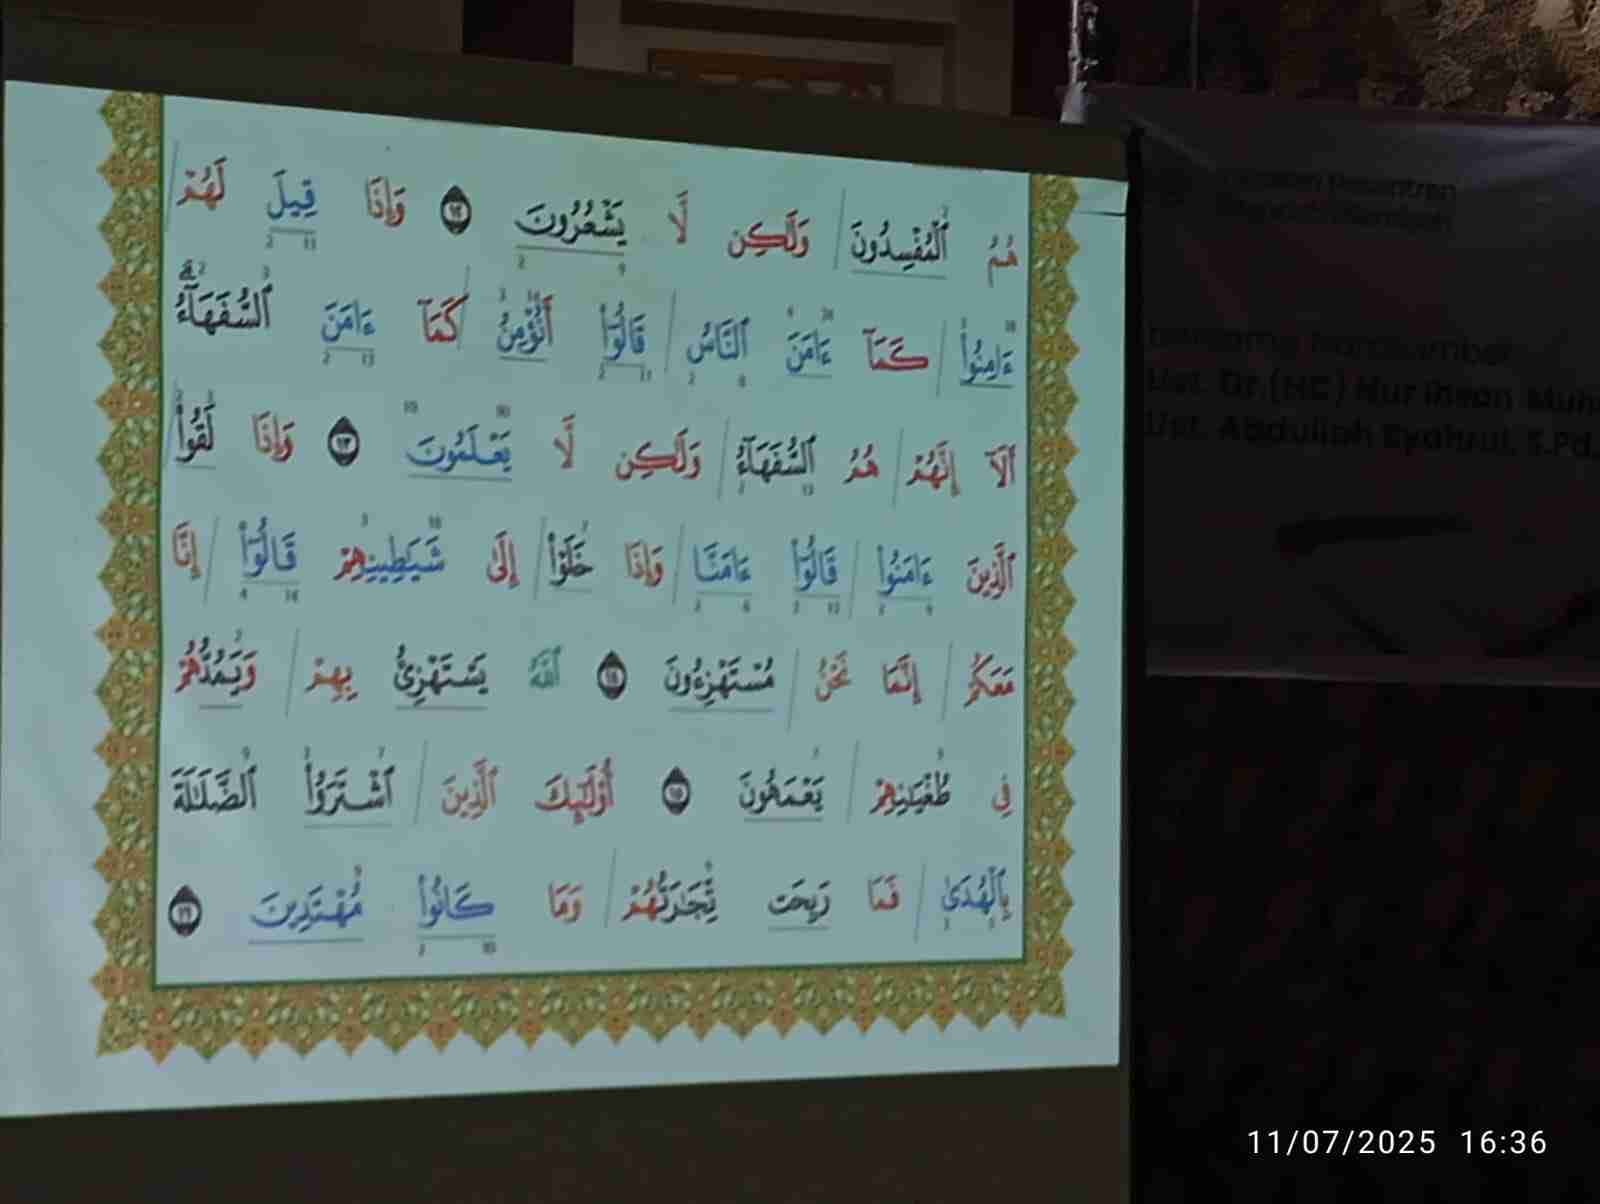 هُمُ ٱلْمُفْسِدُونَ وَلَٰكِن لَّا يَشْعُرُونَ ١٢ وَإِذَا قِيلَ لَهُمْ
ءَامِنُوا۟ كَمَآ ءَامَنَ ٱلنَّاسُ قَالُوٓا۟ أَنُؤْمِنُ كَمَآ ءَامَنَ ٱلسُّفَهَآءُ
أَلَآ إِنَّهُمْ هُمُ ٱلسُّفَهَآءُ وَلَٰكِن لَّا يَعْلَمُونَ ١٣ وَإِذَا لَقُوا۟
ٱلَّذِينَ ءَامَنُوا۟ قَالُوٓا۟ ءَامَنَّا وَإِذَا خَلَوْا۟ إِلَىٰ شَيَٰطِينِهِمْ قَالُوٓا۟ إِنَّا
مَعَكُمْ إِنَّمَا نَحْنُ مُسْتَهْزِءُونَ ١٤ ٱللَّهُ يَسْتَهْزِئُ بِهِمْ وَيَمُدُّهُمْ
فِى طُغْيَٰنِهِمْ يَعْمَهُونَ ١٥ أُو۟لَٰٓئِكَ ٱلَّذِينَ ٱشْتَرَوُا۟ ٱلضَّلَٰلَةَ
بِٱلْهُدَىٰ فَمَا رَبِحَت تِّجَٰرَتُهُمْ وَمَا كَانُوا۟ مُهْتَدِينَ ١٦
Ust. Dr.(HC) Nur Ihsan
Ust. Abdullah Syahrul, S.Pd.
11/07/2025 16:36